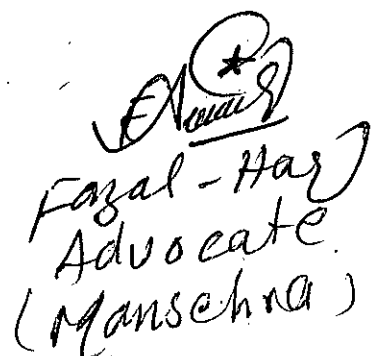 Fazal-Haq
Advocate.
(Mansehra)